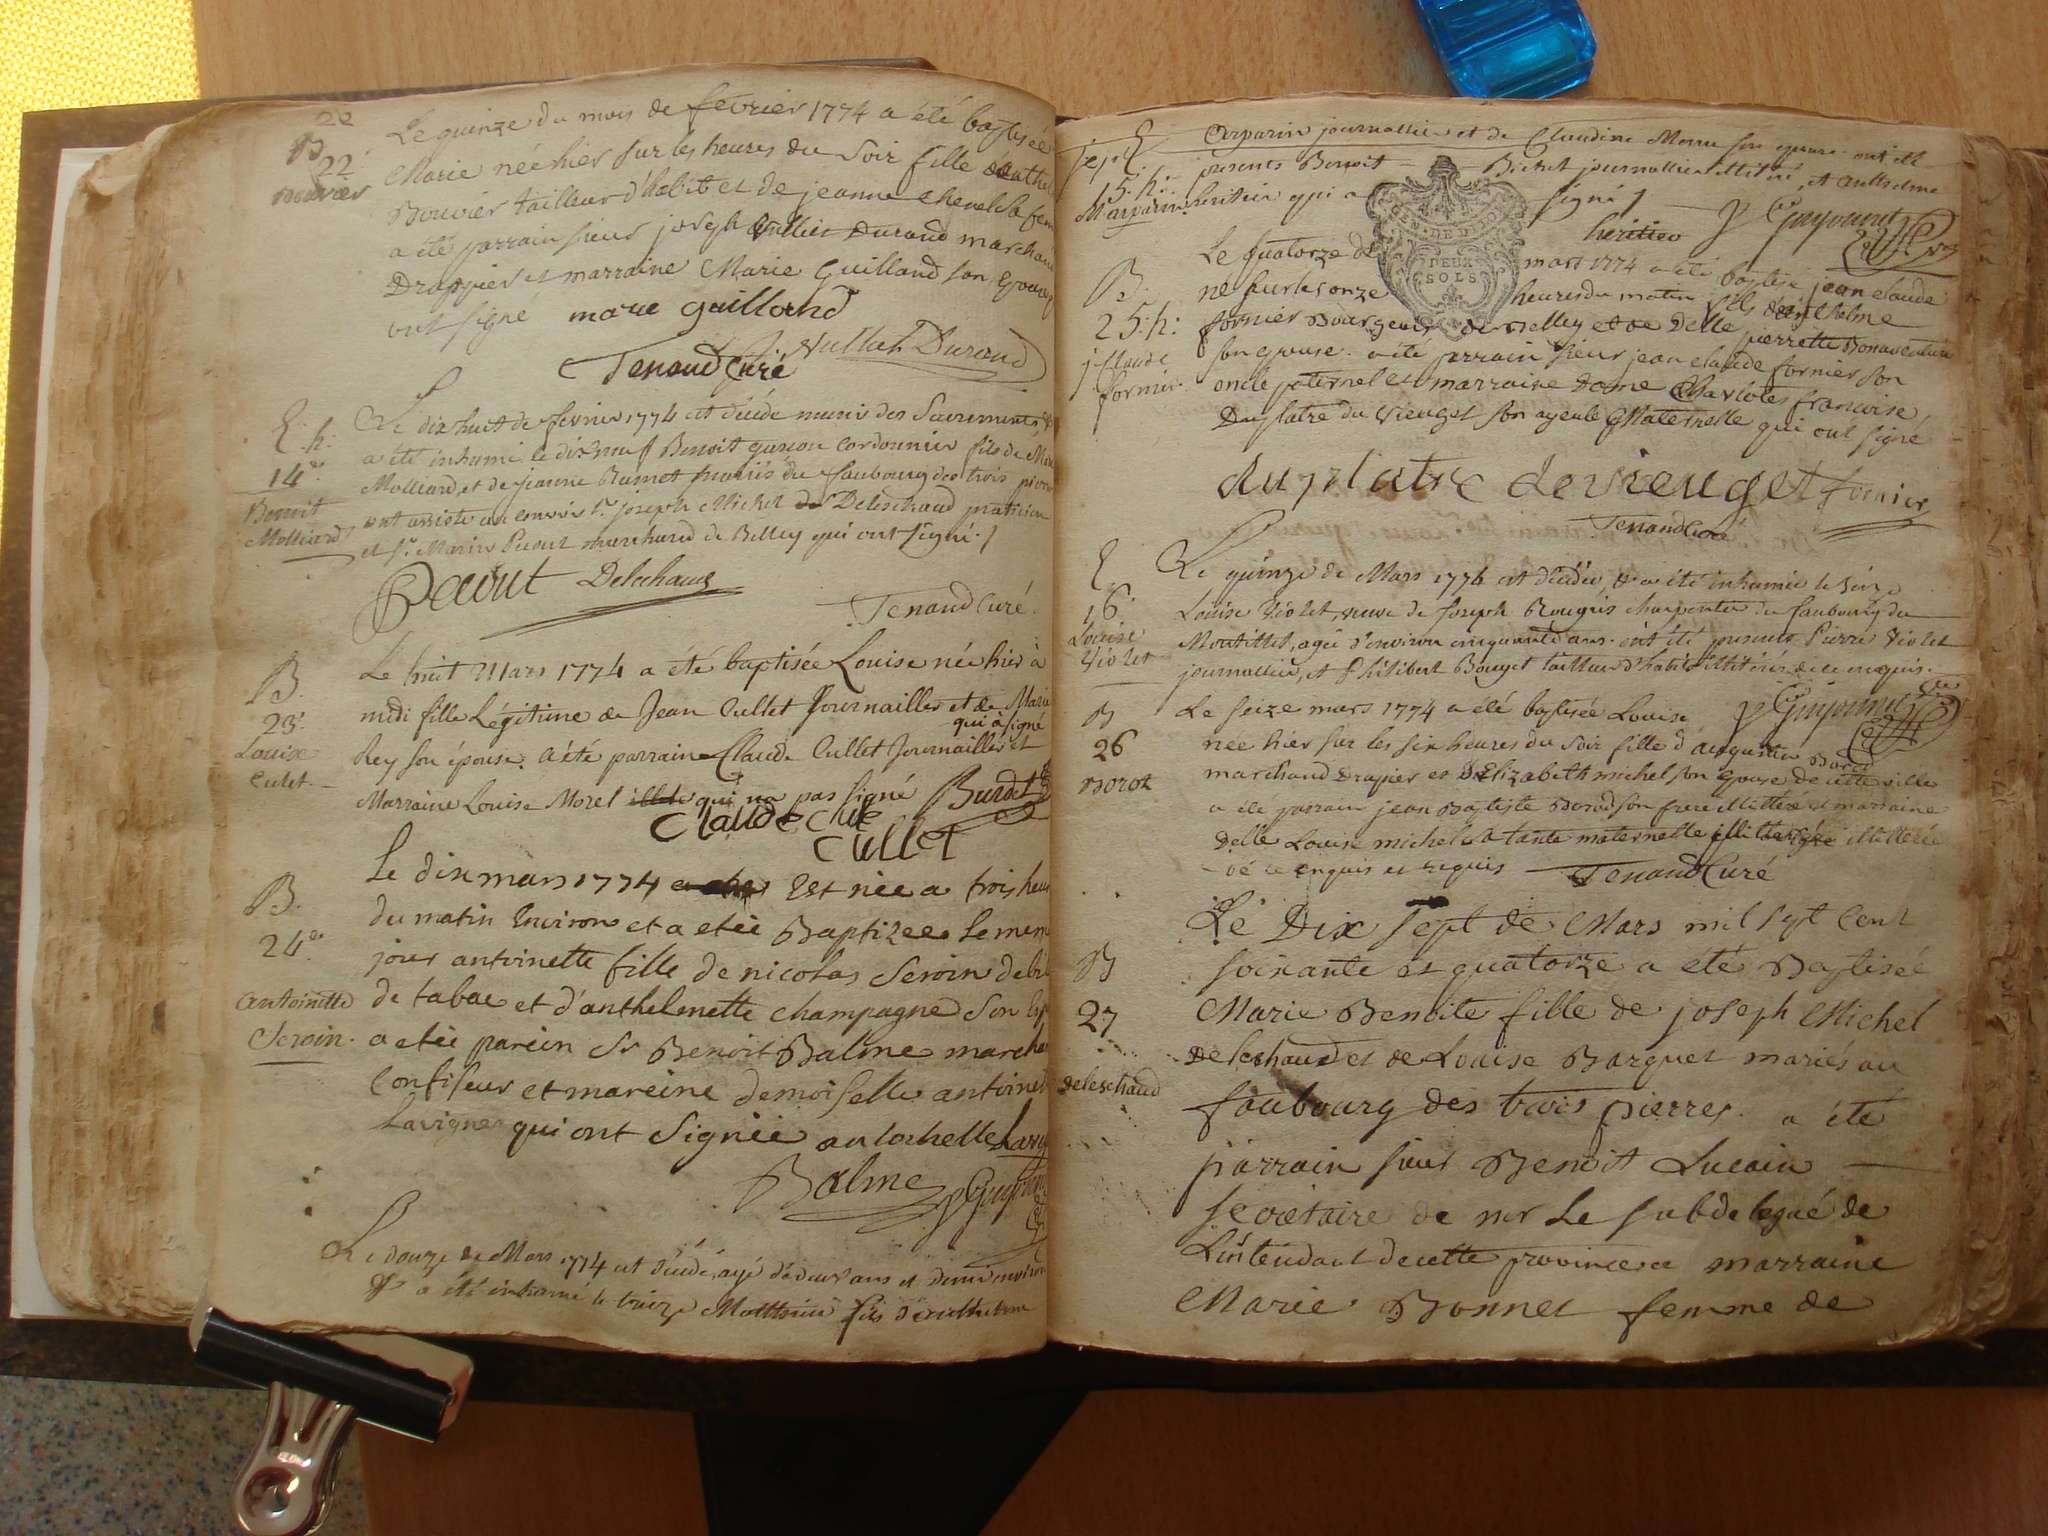 22
B
22
Bouvier
Le quinze du mois de fevrier 1774 a été baptisée
Marie née hier sur les heures du soir fille
Bouvier tailleur d'habit et de jeanne chenel sa
a été parrain sieur joseph Vullier Durand marchand
Drappier et marraine Marie Guilland son epouse
ont signé marie guilland
Vulliet Durand
Tenand Curé
E. h.
14e
Benoit
Molliard
Le dix huit de fevrier 1774 est décédé munis des Sacrements
a été inhumé le dix neuf Benoit garçon Cordonnier fils de
Molliard, et de jeanne Ramet mariés du faubourg des trois
ont assisté au convoi Sr. joseph Michel Deleschaud praticien
et Sr. Marin Pcout marchand de Belley qui ont signé
Deleschaud
Tenand Curé.
B.
23e
Louise
Culet.
Le huit Mars 1774 a été baptisée Louise née hier à
midi fille Légitime de Jean Cullet Journaillier et de Marie
qui à signé
Rey son épouse. a été parrain Claude Cullet Journaillier et
Marraine Louise Morel qui na pas signé Burdet
Claude
Cullet
B.
24e
Antoinette
Seroin.
Le dix mars 1774 Est née a trois heures
du matin Environ et a etée Baptizee le meme
jour antoinette fille de nicolas Seroin
de tabac et d'anthelmette champagne Son
a etée parein Sr Benoit Balme
Confiseur et mareine demoiselle
Lavigne qui ont Signée
Balme
Le douze de Mars 1774 est décédé, agé de deux ans et demi environ
a été inhumé le treize Matthieu fils d'anthelme
E
15. h.
Marparin
Carparin journallier et de Claudine Monnu son epouse. ont été
presents Benoit Bichet journallier illitéré, et anthelme
heritier qui a signé
heritier p Guyonnet
DEUX
SOLS
B.
25. h.
j. claude
fornier.
Le quatorze de mars 1774 a été baptisé jean claude
né sur les onze heures du matin fils d'anthelme
fornier Bourgeois de Belley et de Delle pierrette Bonaventure
son epouse. a été parrain sieur jean claude fornier son
oncle paternel et marraine dame Charlotes francoise
Duplatre du vieuget son ayeule Maternelle qui ont signé
duplatre devieuget fornier
Tenand Curé
E
16.
Louise
Violet
Le quinze de Mars 1774 est décédée & a été inhumée le seize
Louise Violet, veuve de Joseph Rougris charpentier du faubourg du
Montillet, agée d'environ cinquante ans. ont été presents Pierre Violet
journallier, et Philibert Bouget tailleur d'habits illitérés de ce enquis.
p Guyonnet
B
26
Borot
Le seize mars 1774 a été baptisée Louise
née hier sur les six heures du soir fille d'augustin Borot
marchand drapier et d'Elizabeth michel son epouse de cette ville
a été parrain jean Baptiste Borod son frere illittéré et marraine
delle Louise michel sa tante maternelle
de ce enquis et requis Tenand Curé
B
27
deleschaud
Le Dix sept de Mars mil sept cent
soixante et quatorze a eté Baptisée
Marie Benoite fille de joseph Michel
Deleschaud et de Louise Barquet mariés au
faubourg des trois pierres. a été
parrain sieur Benoit Lucain
secretaire de mr Le subdelegué de
L'intendant de cette province marraine
Marie Bonnet femme de